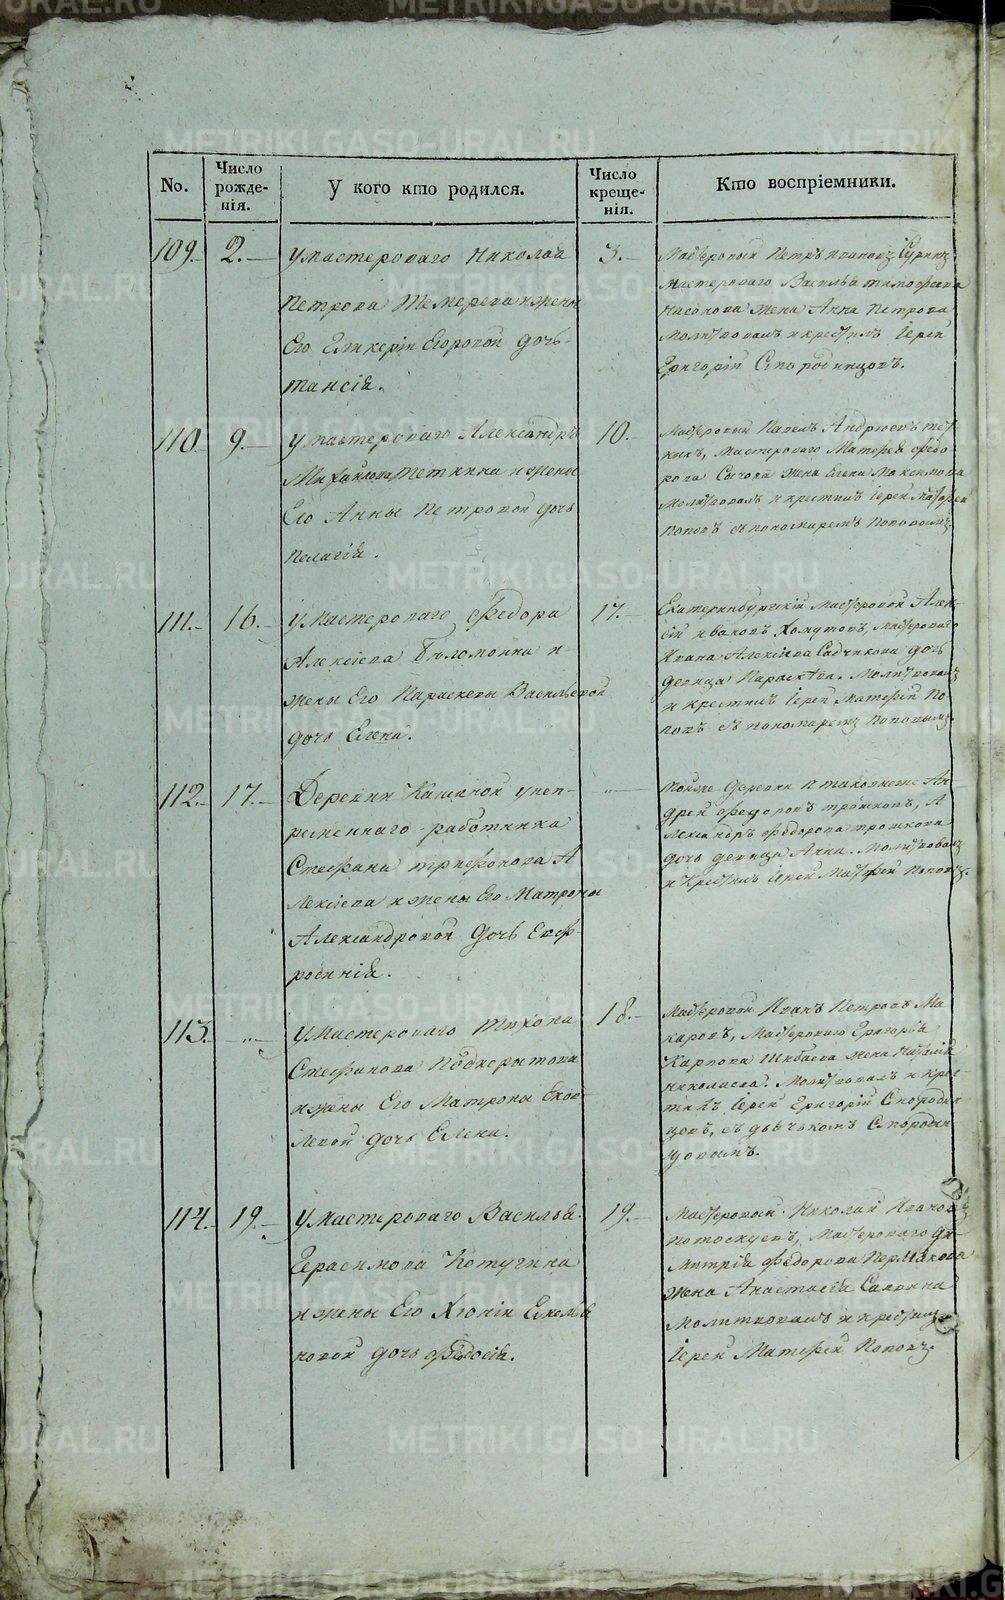 No.
Число рожде-
нія.
У кого кто родился.
Число креще-
нія.
Кто воспріемники.
109.
2.
У мастероваго Николая
Петрова Темерева и жены
Его Гликеріи Егоровой дочь
Таисія.
3.
Мастеровый Петръ Ивановъ
мастероваго Василья Тимофеева
Насонова жена Анна Петрова
Молитвовалъ и крестилъ Іерей
Григорій Смородинцовъ.
110
9.
У мастероваго Александръ
Михайлова Теткина и жены
Его Анны Петровой дочь
Пелагія.
10.
Мастеровый Павелъ Андреевъ Тет-
кинъ, Мастероваго Матфея Федо-
рова Сычова жена Елена Максимова
Молитвовалъ и крестилъ Іерей Матфей
Поповъ съ пономаремъ Поповымъ.
111.
16.
У мастероваго Федора
Алексіева Беломоина и
жены Его Параскевы Васильевой
дочь Елена.
17.
Екатеринбургскій Мастеровой Алек-
сій Ивановъ Хомутовъ, Мастероваго
Ивана Алексіева Садчикова дочь
девица Параскева. Молитвовалъ
и крестилъ Іерей Матфей По-
повъ съ пономаремъ Поповымъ.
112.
17.
Деревни Кашиной у неп-
ременнаго работника
Стефана Трифонова А
лексіева и жены Его Матроны
Александровой дочь Евф-
росинія.
Тойже деревни Ан-
дрей Федоровъ Трошковъ, А
лександръ Федорова Трошкова
дочь девица Анна. Молитвовалъ
и Крестилъ Іерей Матфей Поповъ.
113.
У Мастероваго Тихона
Стефанова Подкорытова
и жены Его Матроны Яков-
левой дочь Елена.
18.
Мастеровой Иванъ Петровъ Ма-
каровъ, Мастероваго Григорья
Карпова Шибаева жена Наталія
Николаева. Молитвовалъ и крес-
тилъ Іерей Григорій Смородин-
цовъ, съ дьячькомъ Смородин
цовымъ.
114.
19.
У Мастероваго Василья
Герасимова Котугина
и жены Его Хіоніи Екемья
новой дочь Федосія.
19.
Мастеровый Николай Иванов
Потоскуевъ, Мастероваго Ди-
митрія Федорова Пермякова
жена Анастасія Саввина
Молитвовалъ и крестилъ
Іерей Матфей Поповъ.
METRIKI.GASO-URAL.RU